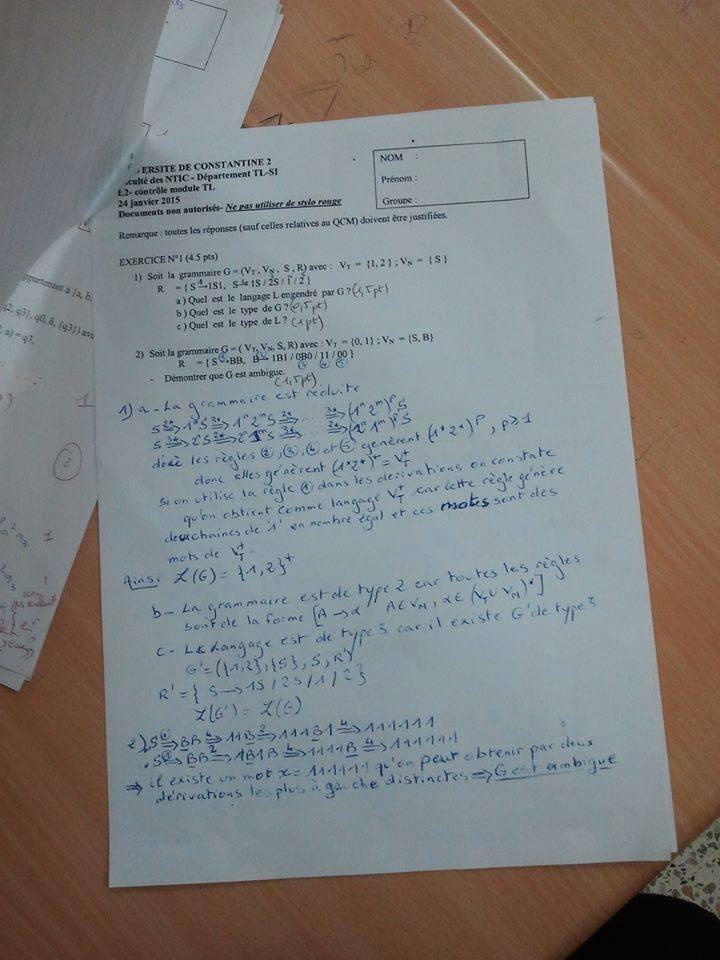 ERSITE DE CONSTANTINE 2
aculté des NTIC - Département TL-SI
L2- contrôle module TL
24 janvier 2015
Documents non autorisés- Ne pas utiliser de stylo rouge
NOM :
Prénom :
Groupe :
Remarque : toutes les réponses (sauf celles relatives au QCM) doivent être justifiées.
EXERCICE N°1 (4.5 pts)
1) Soit la grammaire G = (VT , VN , S , R) avec : VT = {1, 2 } ; VN = { S }
R = { S → 1S1, S → 1S / 2S / 1 / 2 }
a ) Quel est le langage L engendré par G ? (1,5pt)
b ) Quel est le type de G ? (0,5pt)
c ) Quel est le type de L ? (1pt)
2) Soit la grammaire G = ( VT, VN, S, R) avec : VT = {0, 1} ; VN = {S, B}
R = { S → BB, B → 1B1 / 0B0 / 11 / 00 }
- Démontrer que G est ambigue.
(1,5pt)
1) a - La grammaire est réduite
S ⇒ 1ⁿS ⇒ 1ⁿ2ᵐS ⇒ ... ⇒ (1ⁿ2ᵐ)ᵖS
donc les règles ②, ③, ④ et ⑤ génèrent (1*2*)ᵖ, p⩾1
donc elles génèrent (1*2*)⁺ = VT⁺
si on utilise la règle ① dans les derivations on constate
qu'on obtient comme langage VT⁺ car cette règle génère
deux chaines de '1' en nombre égal et ces motes sont des
mots de VT⁺.
Ainsi L(G) = {1,2}⁺
b - La grammaire est de type 2 car toutes les règles
sont de la forme [A → α / A ∈ VN, α ∈ (VT ∪ VN)*]
c - Le Langage est de type 3 car il existe G' de type 3
G' = ({1,2}, {S}, S, R')
R' = { S → 1S / 2S / 1 / 2 }
L(G') = L(G)
2) . S ⇒ BB ⇒ 11B ⇒ 111B1 ⇒ 111111
. S ⇒ BB ⇒ 1B1B ⇒ 1111B ⇒ 111111
⇒ il existe un mot x = 111111 qu'on peut obtenir par deux
dérivations les plus à gauche distinctes ⇒ G est ambigue